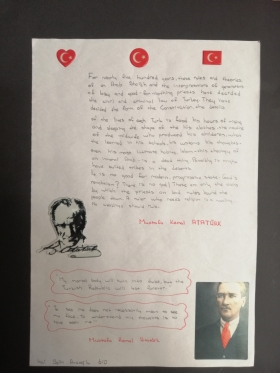 For nearly five hundred years, these rules and theories
of an Arab Shaikh and the interpretations of generations
of lazy and good-for-nothing priests have decided
the civil and criminal law of Turkey. They have
decided the form of the Constitution, the details
of the lives of each Turk, his food, his hours of rising
and sleeping the shape of his clothes, the routine
of the midwife who produced his children, what
he learned in his schools, his customs, his thoughts-
even his most intimate habits. Islam-this theology of
an immoral Arab- is a dead thing. Possibly it might
have suited tribes in the desert.
It is no good for modern, progressive state. God's
revelation! There is no God! These are only the chains
by which the priests and bad rulers bound the
people down. A ruler who needs religion is a weakling.
No weaklings should rule.
Mustafa Kemal ATATÜRK
My mortal body will turn into dust, but the
Turkish Republic will last forever.
To see me does not necessarily mean to see
my face. To understand my thoughts is to
have seen me.
Mustafa Kemal Atatürk